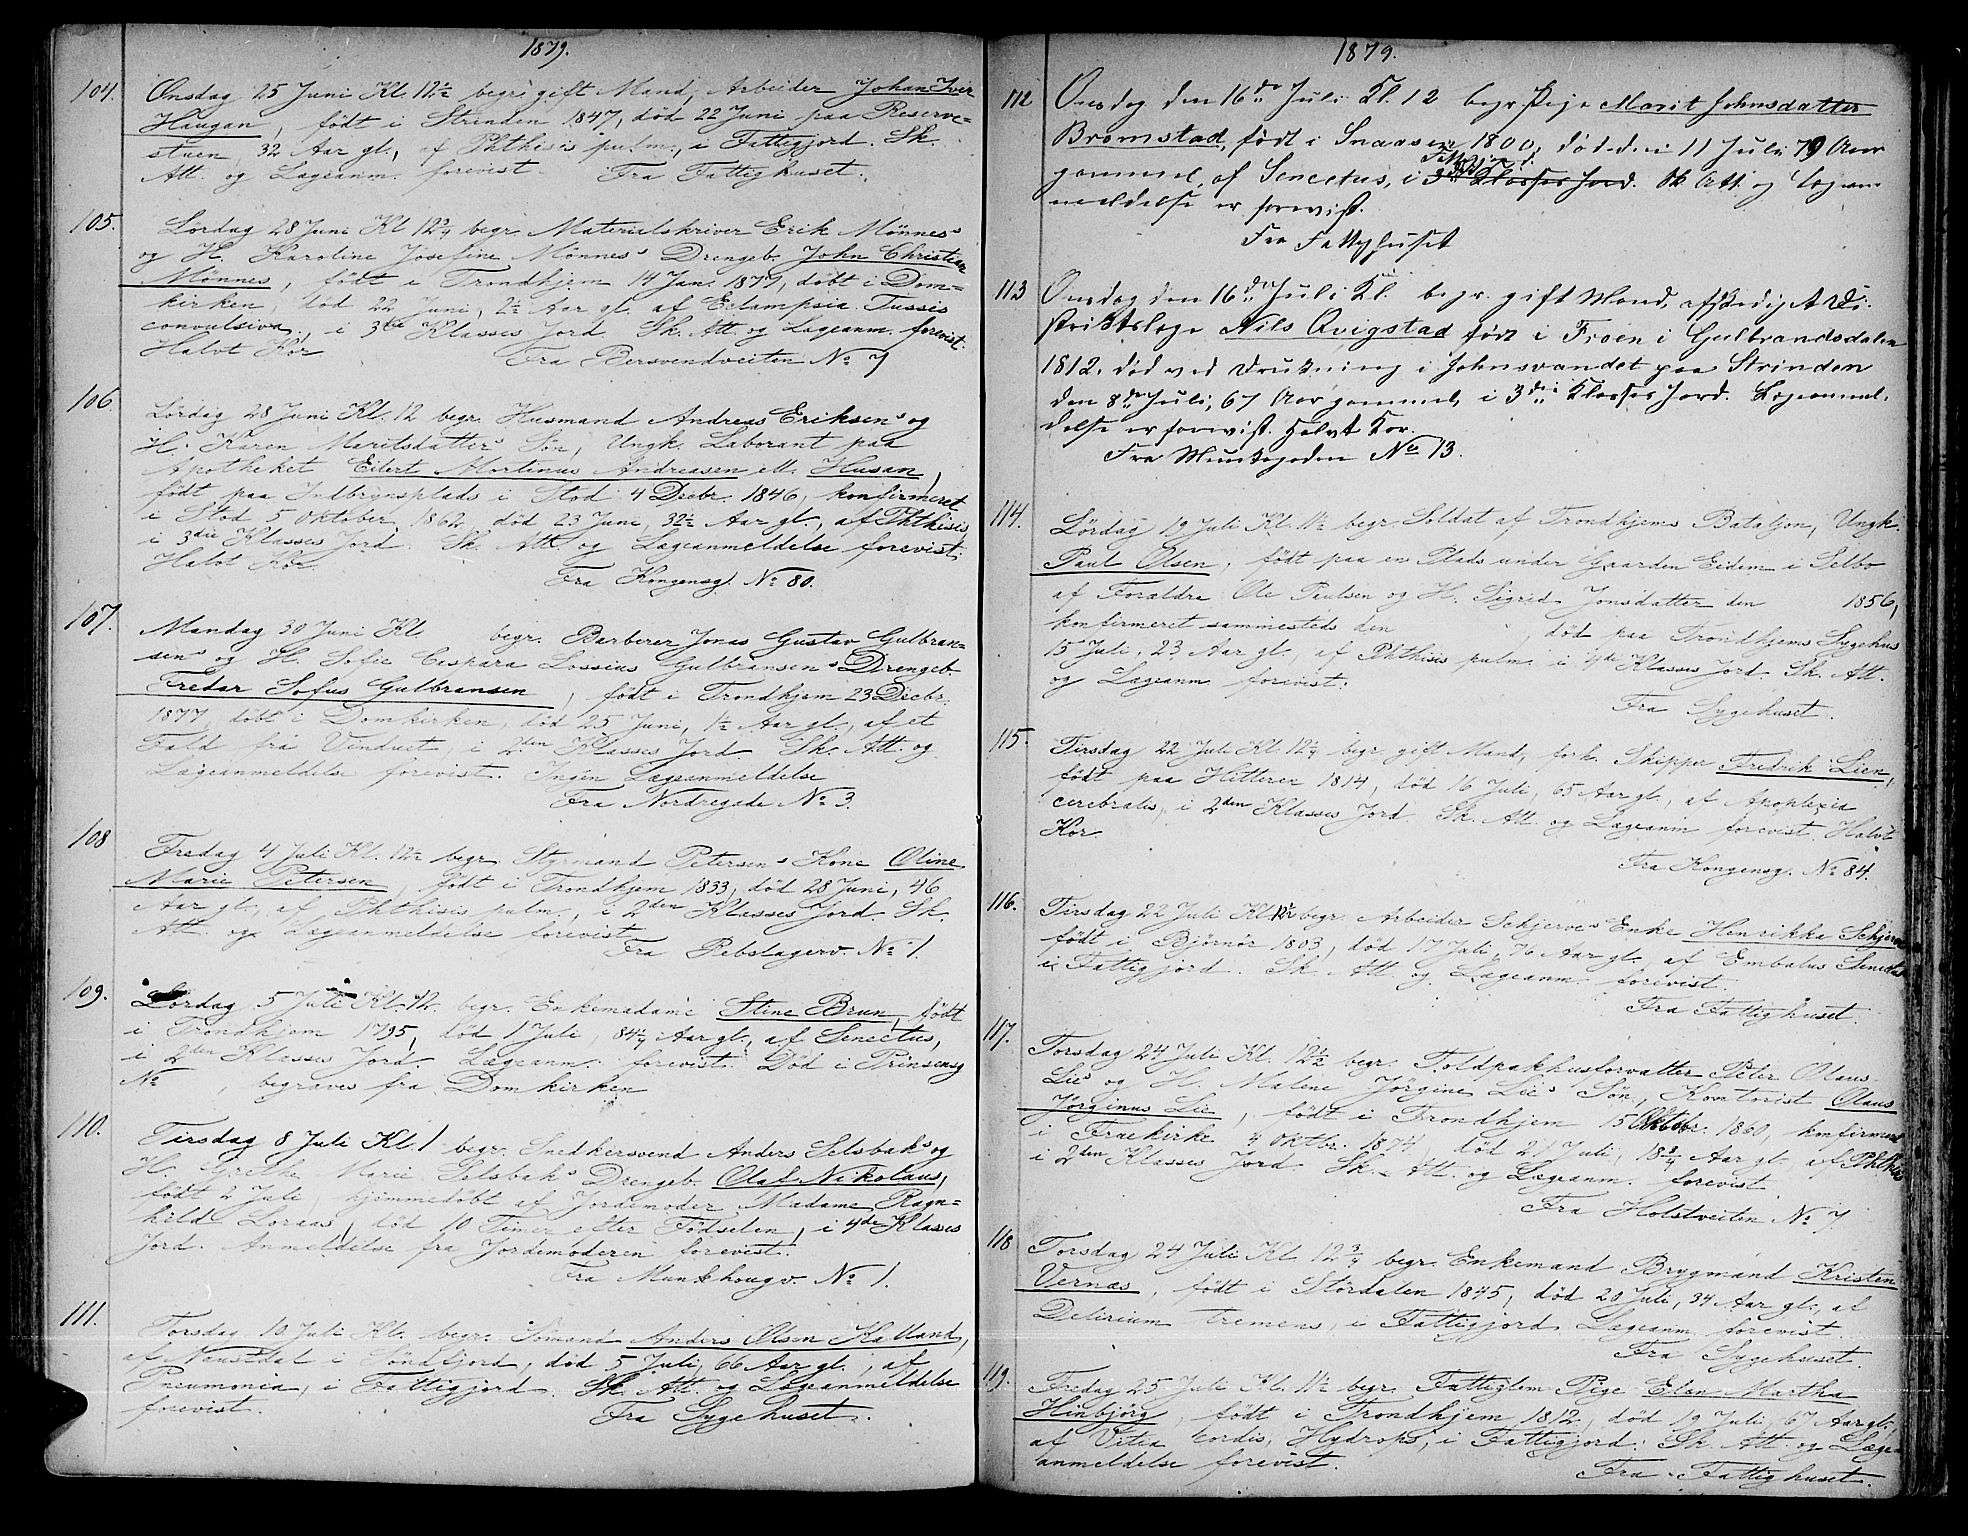 1879.
104. Onsdag 25 Juni Kl. 12½ begr. gift Mand, Arbeider Johan Iver
Haugan, født i Strinden 1847, død 22 Juni paa Reserve=
stuen, 32 Aar gl., af Phthisis pulm., i Fattigjord. Sk.
Att. og Lægeanm. forevist. Fra Fattighuset.
105. Lørdag 28 Juni Kl 12¾ begr. Materialskriver Erik Mønnes's
og H. Karoline Josefine Mønnes's Drengeb. John Christian
Mønnes, født i Trondhjem 14 Jan. 1877, døbt i Dom=
kirken, død 22 Juni, 2½ Aar gl. af Eclampsia. Tussis
convulsiva, i 3die Klasses Jord. Sk. Att og Lægeanm. forevist.
Halvt Kor Fra Bersvendveiten No 7
106. Lørdag 28 Juni Kl. 12 begr. Husmand Andreas Eriksens og
H. Karen Maritsdatters Søn, Ungk. Laborant paa
Apotheket Eilert Mortinus Andreasen ell. Husan,
født paa Indbrynsplads i Stod 4 Decbr. 1846, konfirmeret
i Stod 5 Oktober 1862, død 23 Juni, 32½ Aar gl., af Phthisis
i 3die Klasses Jord. Sk. Att. og Lægeanmeldelse forevist.
Halvt Kor. Fra Kongensg. No 80.
107. Mandag 30 Juni Kl begr. Barberer Jonas Gustav Gulbran=
sens og H. Sofie Caspara Lossius Gulbransens Drengeb.
Fredar Sofus Gulbransen, født i Trondhjem 23 Decbr.
1877, døbt i Domkirken, død 25 Juni, 1½ Aar gl., af et
Fald fra Vinduet, i 2den Klasses Jord. Sk. Att. og
Lægeanmeldelse forevist. Ingen Lægeanmeldelse
Fra Nordregade No 3.
108 Fredag 4 Juli Kl. 12½ begr. Styrmand Petersens Kone Oline
Marie Petersen, født i Trondhjem 1833, død 28 Juni, 46
Aar gl., af Phthisis pulm., i 2den Klasses Jord. Sk.
Att. og Lægeanmeldelse forevist.
Fra Rebslagerv. No 1.
109. Lørdag 5 Juli Kl. 12. begr. Enkemadame Stine Brun, født
i Trondhjem 1795, død 1 Juli, 84¼ Aar gl., af Senectus,
i 2den Klasses Jord. Lægeanm. forevist. Død i Prinsensg
No , begraves fra Domkirken
110. Tirsdag 8 Juli Kl. 1 begr. Snedkersvend Anders Selsbaks og
H. Grethe Marie Selsbaks Drengeb. Olaf Nikolaus,
født 2 Juli, hjemmedøbt af Jordemoder Madame Ragn=
hild Loraas, død 10 Timer efter Fødselen, i 4de Klasses
Jord. Anmeldelse fra Jordemoderen forevist.
Fra Munkhougv. No 1.
111. Torsdag 10 Juli Kl. begr. Sømand Anders Olsen Kalland,
af Naustdal i Søndfjord, død 5 Juli, 66 Aar gl., af
Pneumonia, i Fattigjord. Sk. Att. og Lægeanmeldelse
forevist. Fra Sygehuset.
1879.
112 Onsdag den 16de Juli Kl. 12 begr. Pige Marit Johnsdatter
Bromstad, født i Snaasen 1800, død den 11 Juli, 79 Aar
gammel, af Senectus, i 3die Klasses Jord. Fattigjord. Sk. Att. og Lægean
meldelse er forevist.
Fra Fattighuset
113 Onsdag den 16de Juli Kl. begr. gift Mand, afskediget Di-
striktslæge Nils Qvigstad født i Froen i Gulbrandsdalen
1812, død ved Drukning i Johnsvandet paa Strinden
den 8de Juli, 67 Aar gammel, i 3die Klasses Jord. Lægeanmel.
delse er forevist. Halvt Kor.
Fra Munkegaden No 13.
114. Lørdag 19 Juli Kl. 1½ begr. Soldat af Trondhjems Bataljon, Ungk.
Paul Olsen, født paa en Plads under Gaarden Eidem i Selbo
af Forældre Ole Paulsen og H. Sigrid Jonsdatter den 1856,
konfirmeret sammesteds den død paa Trondhjems Sygehus
15 Juli, 23 Aar gl., af Phthisis pulm. i 4de Klasses Jord Sk. Att.
og Lægeanm forevist.
Fra Sygehuset.
115. Tirsdag 22 Juli Kl. 12¼ begr. gift Mand, forh. Skipper Fredrik Lien,
født paa Hitteren 1814, død 16 Juli, 65 Aar gl., af Apoplexia
cerebralis, i 2den Klasses Jord. Sk. Att. og Lægeanm forevist. Halvt
Kor
Fra Kongensg. No 84.
116. Tirsdag 22 Juli Kl. 12½ begr. Arbeider Schjerves Enke Henrikke Schjerve
født i Bjørnør 1803, død 17 Juli, 76 Aar gl. af Embolus Senectus
i Fattigjord. Sk. Att. og Lægeanm. forevist.
Fra Fattighuset.
117. Torsdag 24 Juli Kl. 12½ begr. Toldpakhusforvalter Peter Olaus
Lies og H. Malene Jørgine Lies Søn, Kontorist Olaus
Jørginus Lie, født i Trondhjem 15 Oktobr. 1860, konfirmeret
i Fruekirke 4 Oktbr. 1874, død 21 Juli, 18¾ Aar gl. af Phthisis
i 2den Klasses Jord Sk. Att. og Lægeanm. forevist.
Fra Holstveiten No 7
118 Torsdag 24 Juli Kl. 12¾ begr. Enkemand Brygmand Kristen
Vernas, født i Stördalen 1845, død 20 Juli, 34 Aar gl., af
Delirium tremens, i Fattigjord. Lægeanm. forevist.
Fra Sygehuset.
119. Fredag 25 Juli Kl. 1½ begr. Fattiglem Pige Elen Martha
Hinbjørg, født i Trondhjem 1812, død 19 Juli, 67 Aar gl.,
af Vitia cordis, Hydrops, i Fattigjord. Sk. Att. og Læge=
anmeldelse forevist.
Fra Fattighuset.